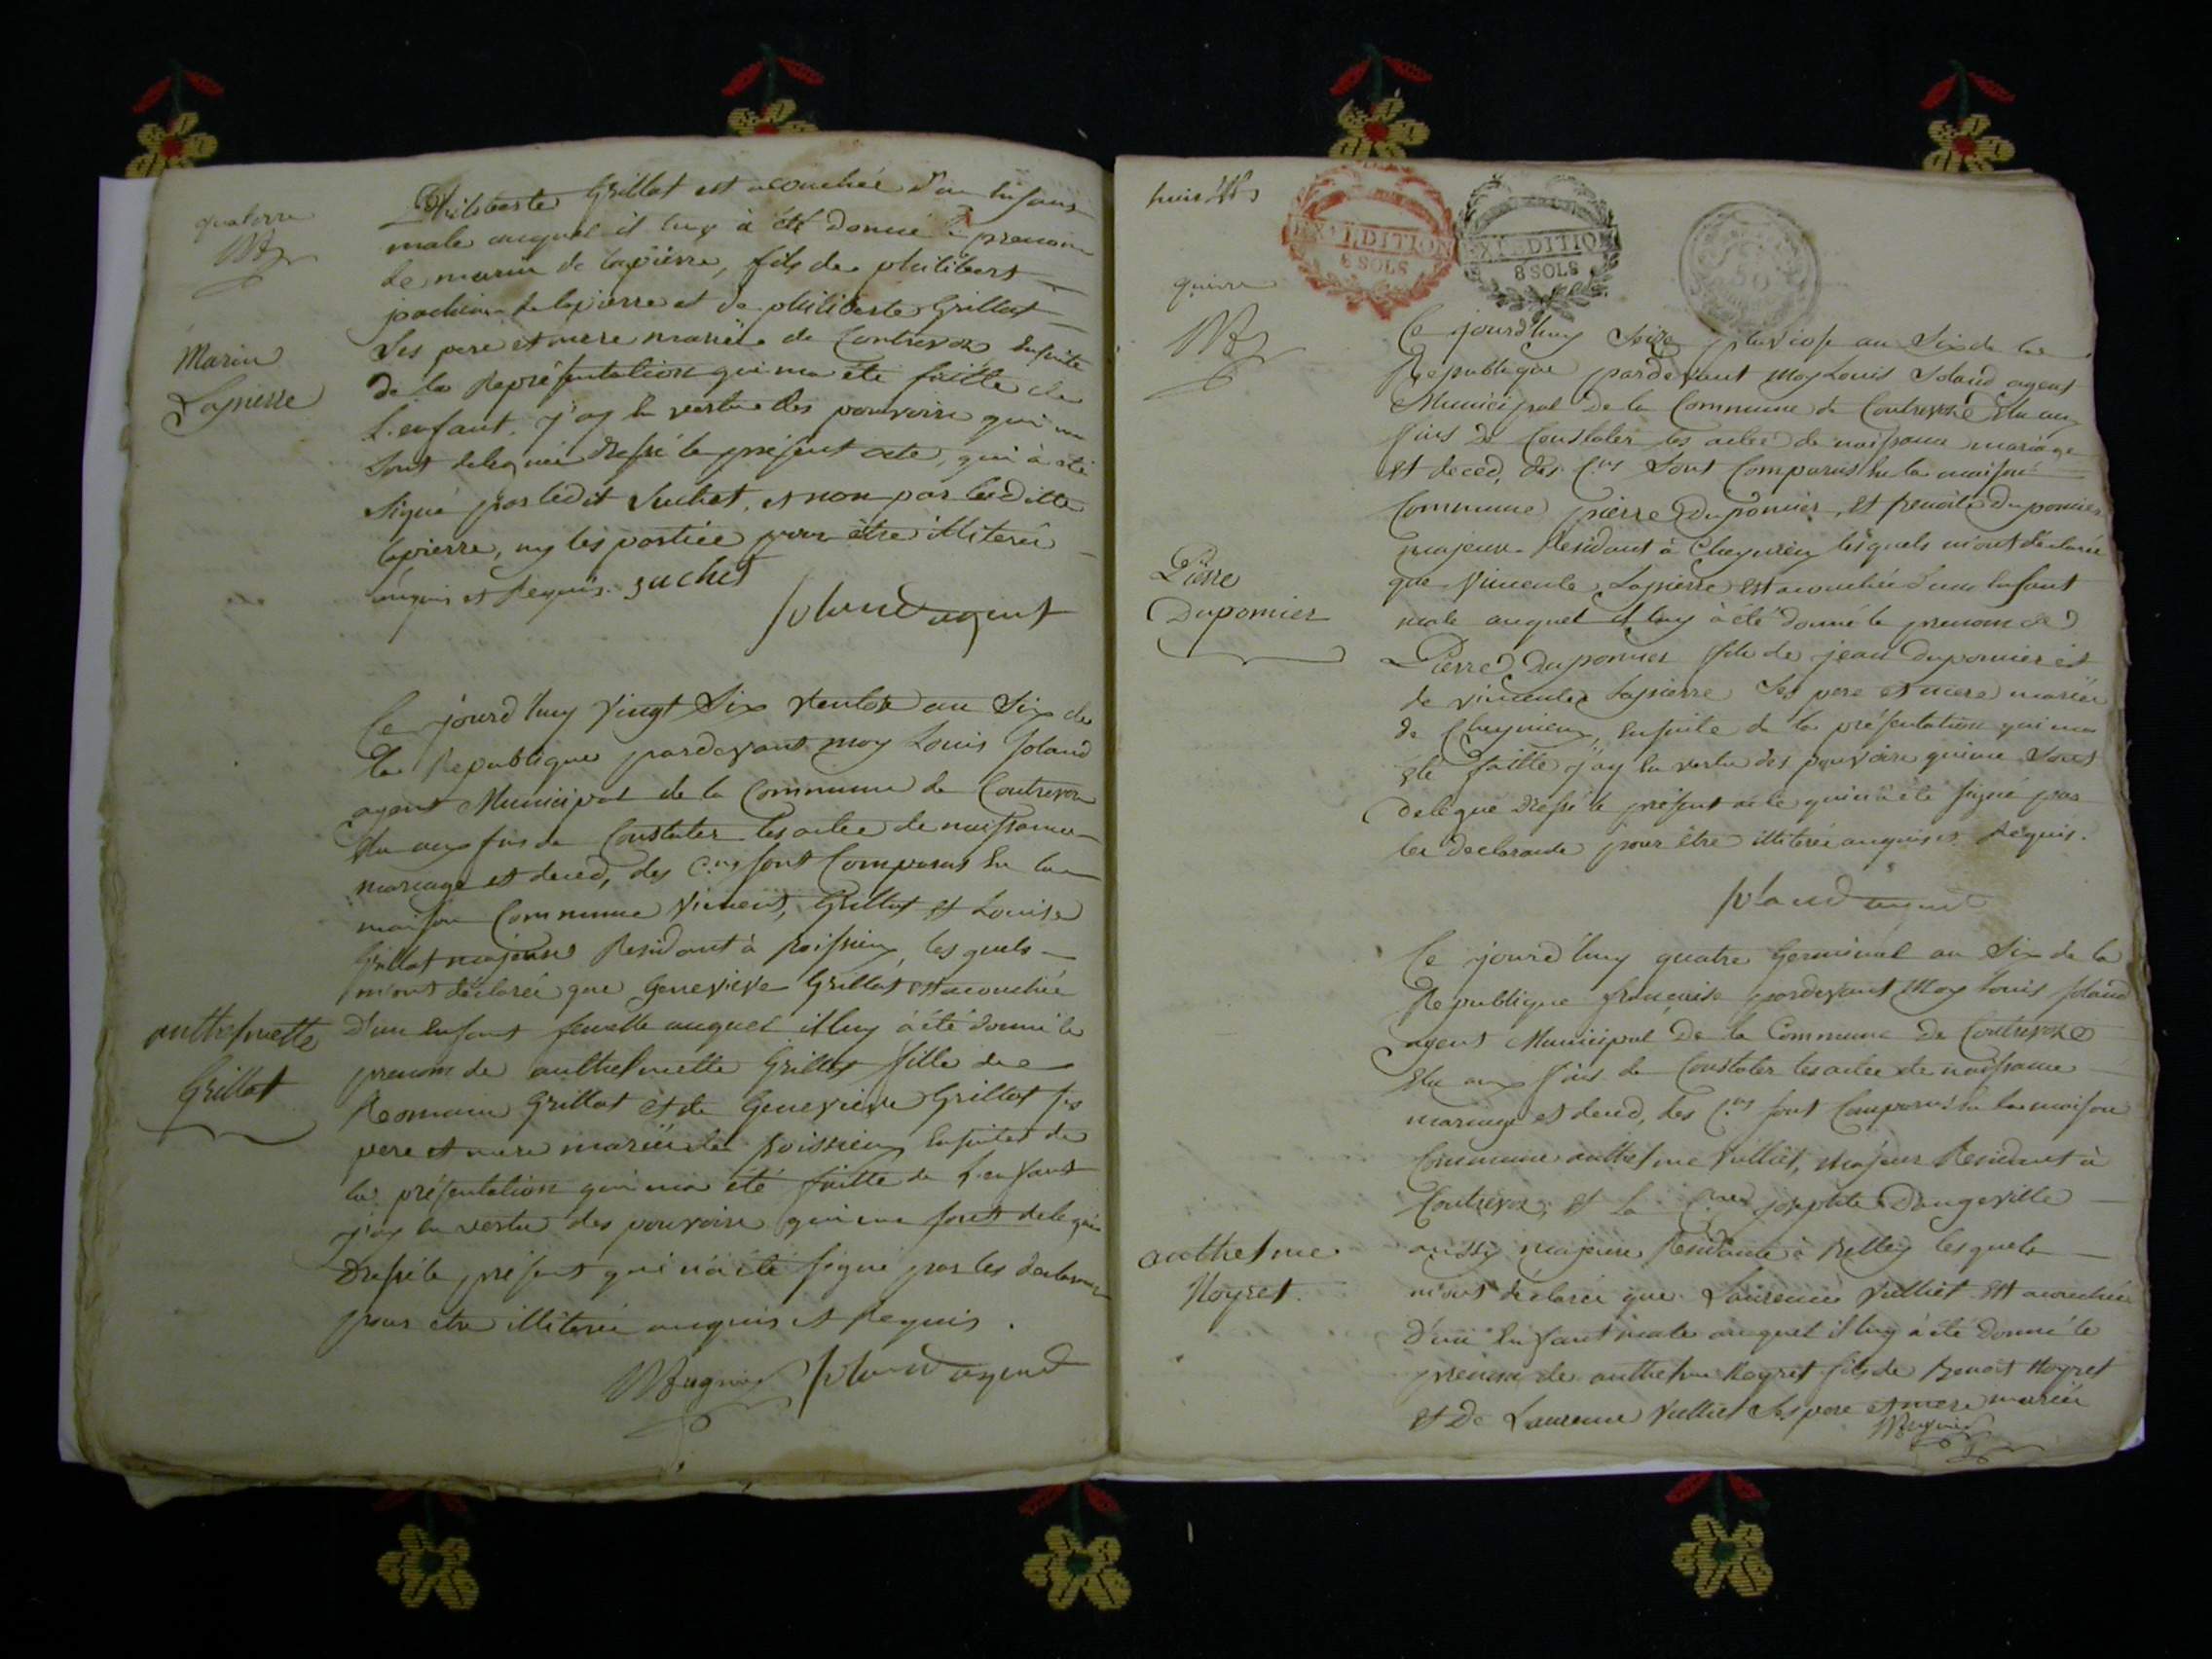 quatorze
Marin
Lapierre
Philiberte Grillat est acouchée d'un Enfant
male auquel il luy à été donné le prenom
de marin de lapierre, fils de philibert
joachim de lapierre et de philiberte Grillat
Ses pere et mere mariée de Contrevoz Ensuite
de la Représentation qui ma été faitte de
L'enfant. j'ay En vertu des pouvoirs qui me
Sont delegués Dressé le présent acte, qui à été
Signé par ledit Suchet, et non par laditte
lapierre, ny les parties pour être illiterés
enquis et Requis. suchet
Joland agent
Ce jourd'huy vingt Six ventose an Six de
la Republique pardevant moy Louis Joland
agent Municipal de la Commune de Contrevoz
Elu aux fins de Constater les actes de naissance
mariage et deced, des C.ens sont Comparus En la
maison Commune Vincent Grillat et Louise
Grillat majeurs Residant à poissieu, les quels
m'ont déclarée que Genevieve Grillat est acouchée
anthelmette
Grillat
D'un Enfant femelle auquel il luy à été donné le
prenom de anthelmette Grillat fille de
Romain Grillat et de Genevieve Grillat ses
pere et mere mariée de poissieu, Ensuite de
la présentation qui ma été faitte de L'enfant
j'ay En vertu des pouvoirs qui me sont delegués
Dressé le présent qui n'a été signé par les declarants
pour etre illiterée enquis et Requis.
Mugnier Joland agent
huit
quinze
EXPEDITION
8 SOLS
EXPEDITION
8 SOLS
50
Ce jourd'huy Seize pluviose an Six de la
Republique pardevant moy Louis Joland agent
Municipal de la Commune de Contrevoz Elu aux
fins de Constater les actes de naissance mariage
et deced, des C.ens Sont Comparus En la maison
Commune pierre Duponier, et benoite Duponier
majeurs Residant à Cheynieu lesquels m'ont déclarée
Pierre
Duponier
que Vincente Lapierre est acouchée d'un Enfant
male auquel il luy à été donné le prenom de
Pierre Duponier fils de jean duponier et
de vincente Lapierre Ses pere et mere mariée
de Cheynieu, Ensuite de la présentation qui ma
Eté faitte j'ay En vertu des pouvoirs qui me Sont
delegué Dressé le présent acte qui n'a été signé par
les declarants pour être illiterée enquis et Requis.
Joland agent
Ce jourd'huy quatre Germinal an Six de la
Republique françaisse pardevant Moy Louis Joland
agent Municipal De la Commune de Contrevoz
Elu aux fins de Constater les actes de naissance
mariage et deced, des C.ens sont Comparus En la maison
Commune anthelme Vulliet, Majeur Residant à
Contrevoz, et la C.enne josephte Dangeville
anthelme
Noyret.
aussy majeure Residante à Belley lesquels
m'ont déclarée que Laurence Vulliet est acouchée
D'un Enfant male auquel il luy à été donné le
prenom de anthelme Noyret fils de Benoit Noyret
et de Laurence Vulliet Ses pere et mere mariée
Mugnier